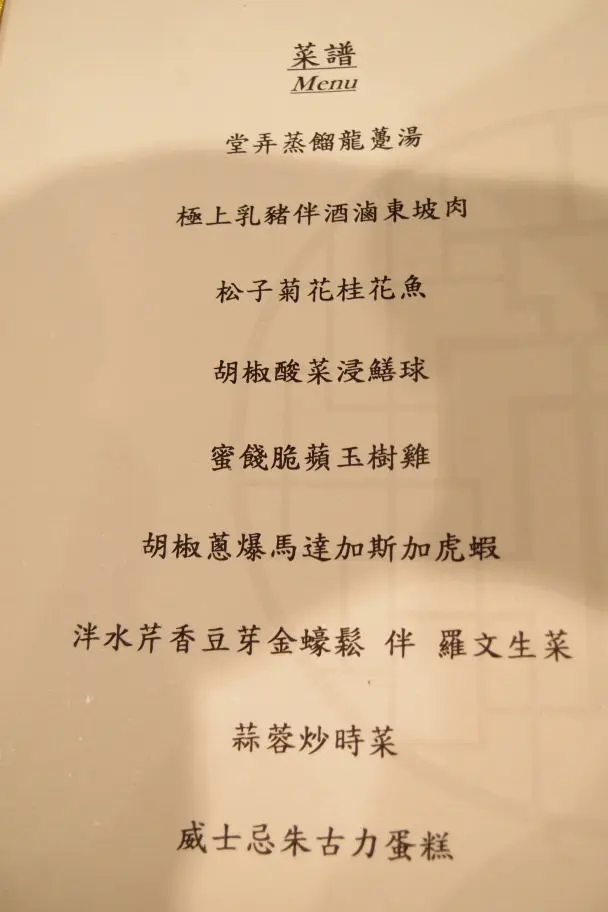 菜譜
Menu
堂弄蒸餾龍躉湯
極上乳豬伴酒滷東坡肉
松子菊花桂花魚
胡椒酸菜浸鱔球
蜜餞脆蘋玉樹雞
胡椒蔥爆馬達加斯加虎蝦
泮水芹香豆芽金蠔鬆 伴 羅文生菜
蒜蓉炒時菜
威士忌朱古力蛋糕